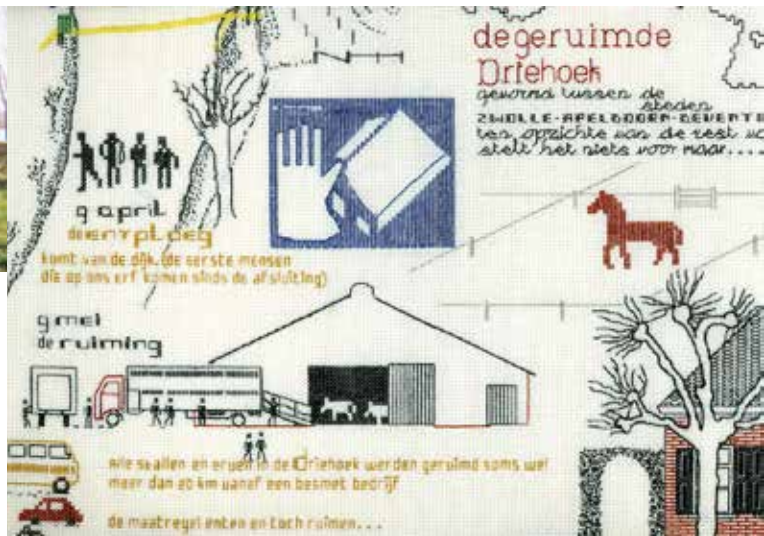 de geruimde
Driehoek
gevormd tussen de
steden
ZWOLLE-APELDOORN-DEVENTE
ten opzichte van de rest va
stelt het niets voor maar....
9 april
de entploeg
komt van de dijk (de eerste mensen
die op ons erf komen sinds de afsluiting)
9 mei
de ruiming
Alle stallen en erven in de Driehoek werden geruimd soms wel
meer dan 20 km vanaf een besmet bedrijf
de maatregel enten en toch ruimen...